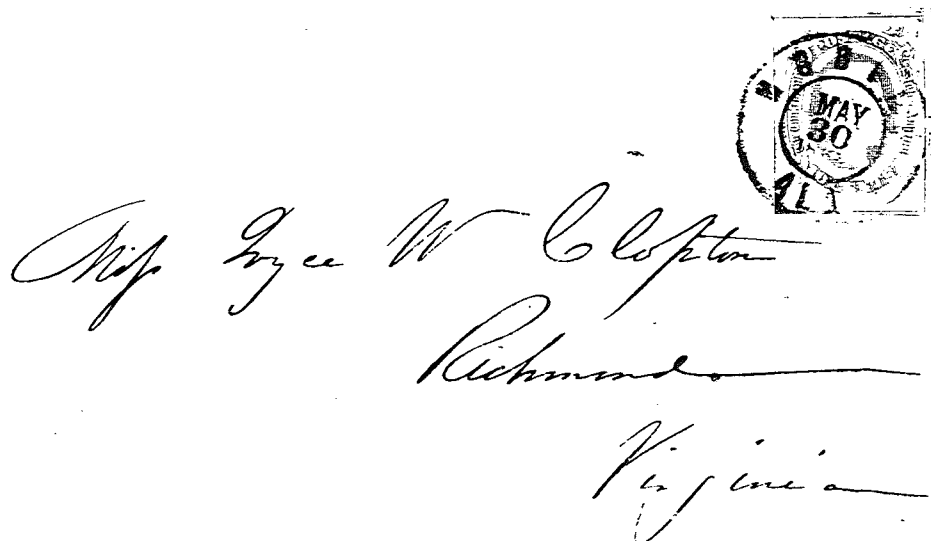 MOBILE
MAY
30
ALA
Miss Joyce W Clopton
Richmond
Virginia